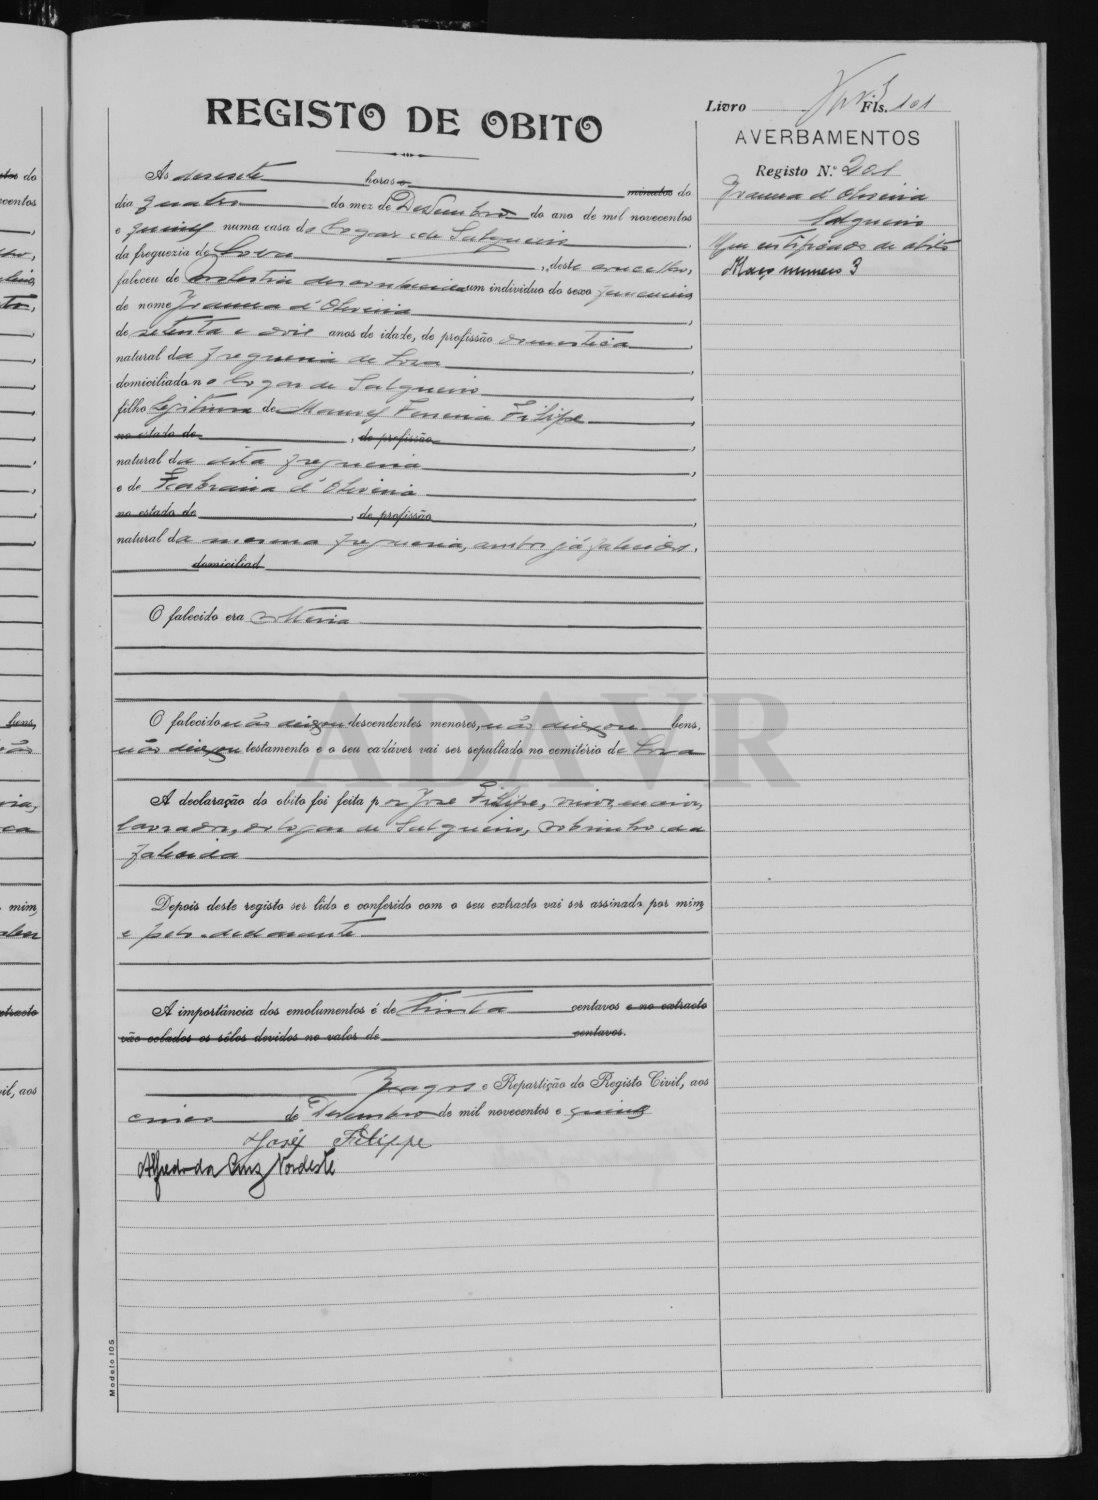 REGISTO DE OBITO
Livro Fls. 101
AVERBAMENTOS
Registo N.º 201
Joanna d'Oliveira
Salgueiro
Um certificado de obito
Maço numero 3
Ás dezesete horas e minutos do
dia quatro do mez de Dezembro do ano de mil novecentos
e quinze numa casa do Logar de Salgueiro,
da freguezia de Soza, deste concelho,
faleceu de molestia desconhecida um individuo do sexo femenino
de nome Joanna d'Oliveira,
de setenta e dois anos de idade, de profissão domestica,
natural da freguesia de Soza,
domiciliada no logar de Salgueiro,
filho legitima de Manuel Ferreira Filipe,
no estado de, de profissão,
natural da dita freguesia,
e de d'Oliveira
no estado de, de profissão,
natural da mesma freguesia, ambos já falecidos.
domiciliad
O falecido era solteira
O falecido não deixou descendentes menores, não deixou bens,
não deixou testamento e o seu cadáver vai ser sepultado no cemitério de Soza
A declaração do obito foi feita por José Filipe, viuvo, maior,
lavrador, do logar de Salgueiro, sobrinho da
falecida
Depois deste registo ser lido e conferido com o seu extracto vai ser assinado por mim,
e pelo declarante
A importância dos emolumentos é de trinta centavos e no extracto
vão colados os sêlos devidos no valor de centavos.
Vagos e Repartição do Registo Civil, aos
cinco de Dezembro de mil novecentos e quinze
José Filippe
Alfredo da Cruz Nordeste
Modelo 105
ADAVR